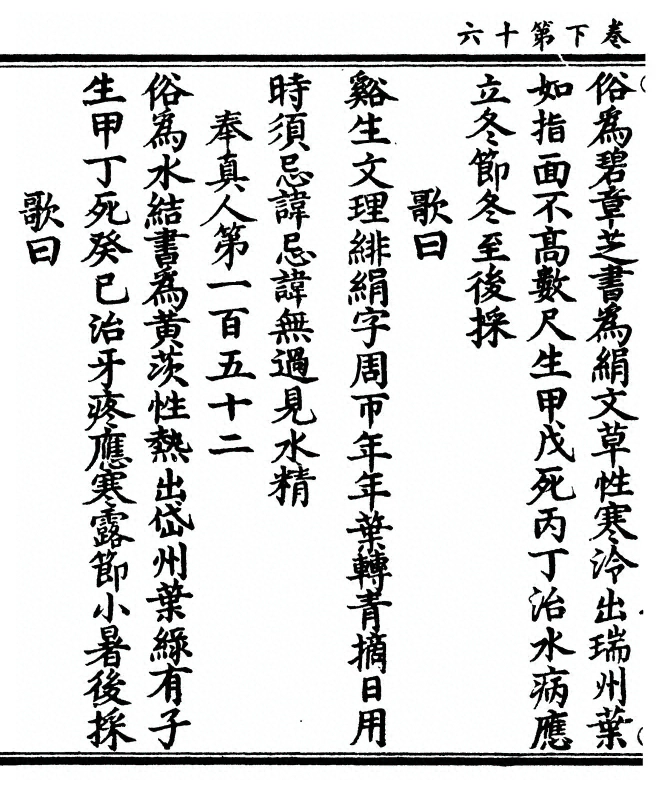 卷下第十六
俗為碧章芝書為絹文草性寒冷出瑞州葉
如指面不高數尺生甲戊死丙丁治水病應
立冬節冬至後採
歌曰
谿生文理緋絹字周帀年年葉轉青摘日用
時須忌諱忌諱無過見水精
奉真人第一百五十二
俗為水結書為黄茨性熱出岱州葉綠有子
生甲丁死癸巳治牙疼應寒露節小暑後採
歌曰